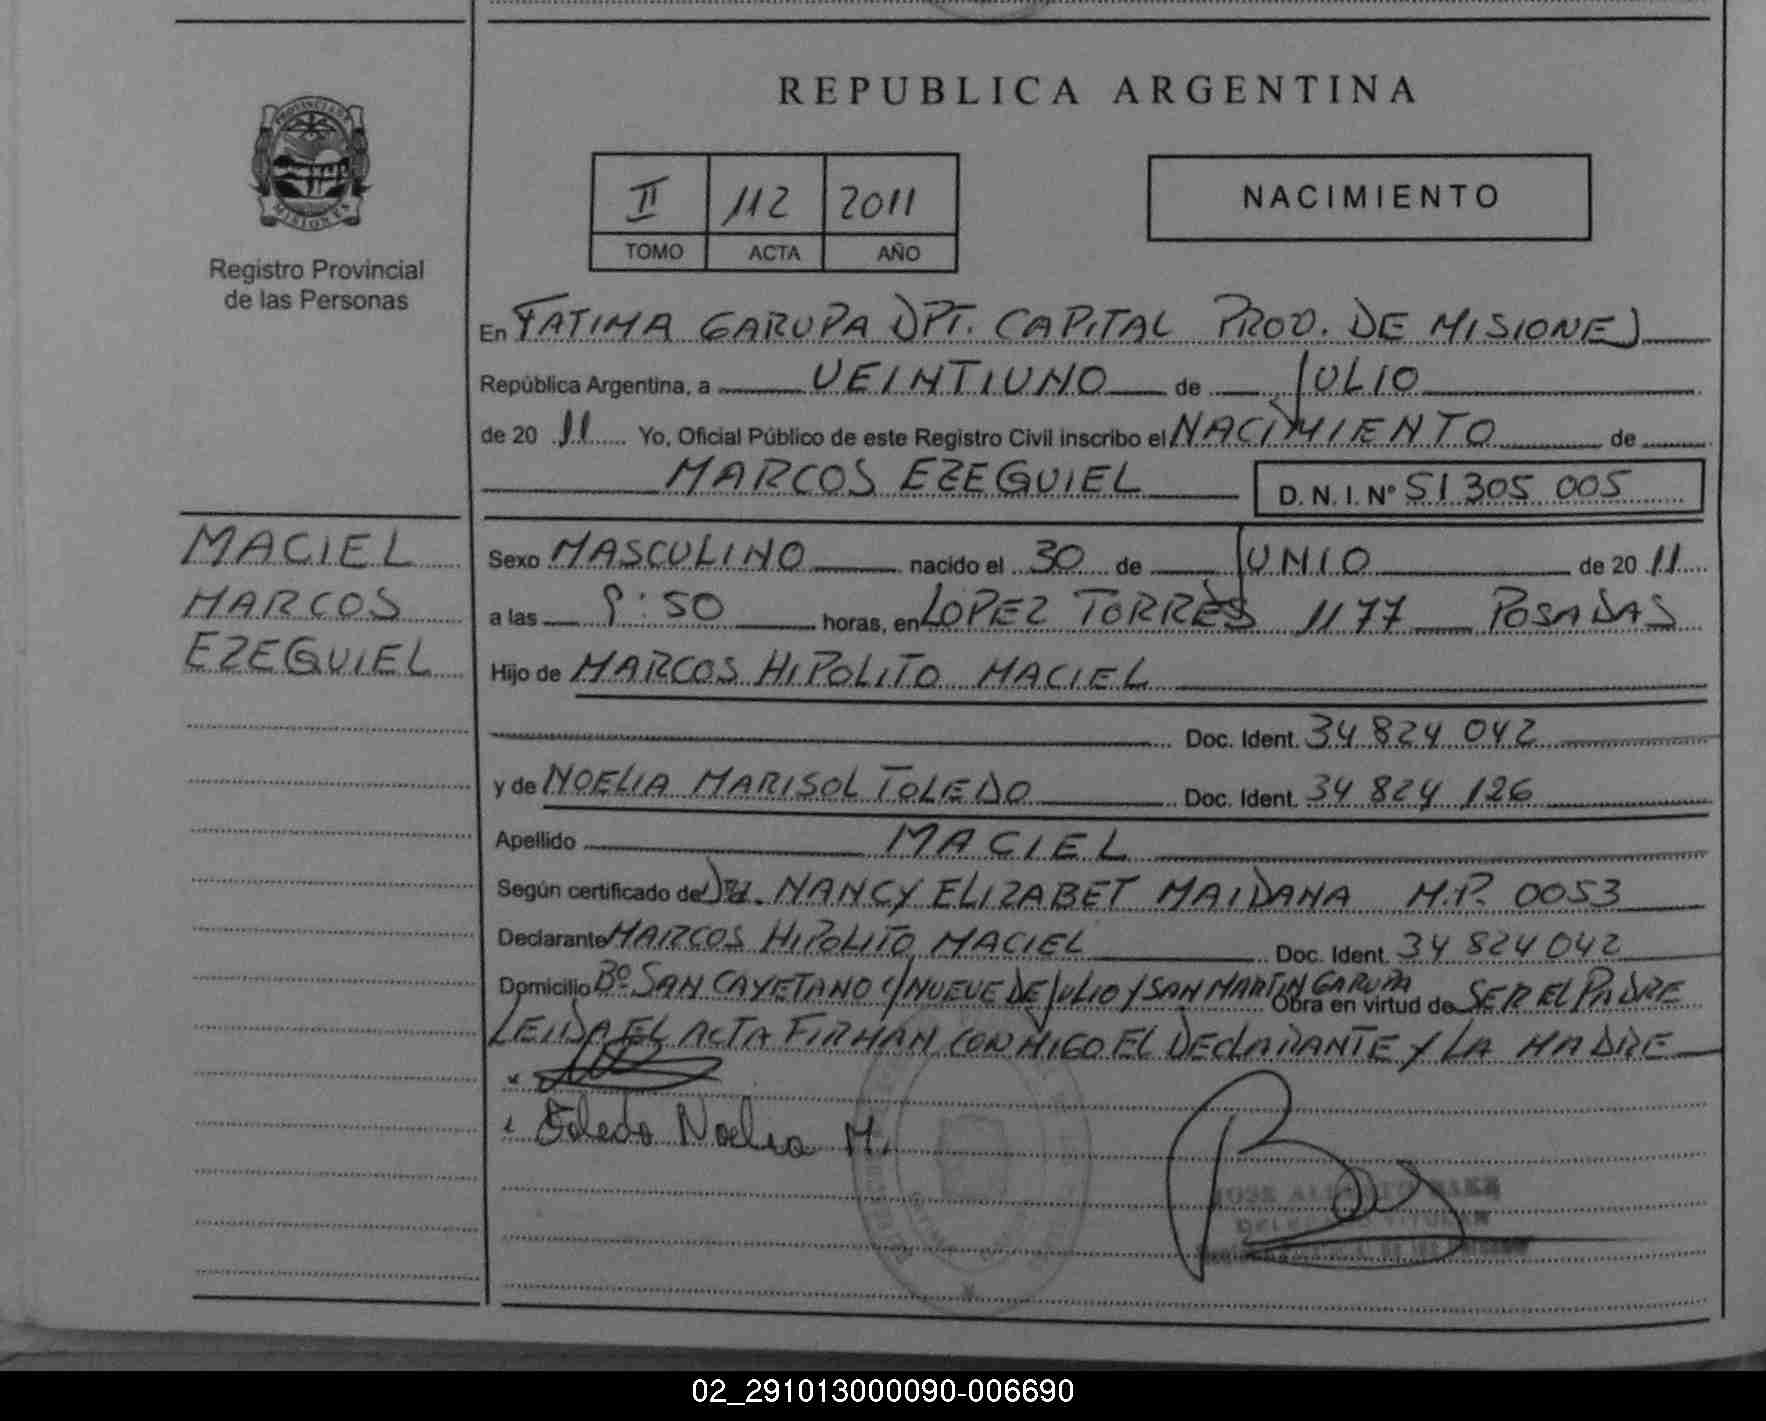 PROVINCIA DE
MISIONES
Registro Provincial
de las Personas
REPUBLICA ARGENTINA
II 112 2011
TOMO ACTA AÑO
NACIMIENTO
En FATIMA GARUPA DPT. CAPITAL PROV. DE MISIONES
República Argentina, a VEINTIUNO de JULIO
de 20 11 Yo, Oficial Público de este Registro Civil inscribo el NACIMIENTO de
MARCOS EZEQUIEL D. N. I. Nº 51 305 005
MACIEL
MARCOS
EZEQUIEL
Sexo MASCULINO nacido el 30 de JUNIO de 20 11
a las 9:50 horas, en LOPEZ TORRES 1177 POSADAS
Hijo de MARCOS HIPOLITO MACIEL
Doc. Ident. 34 824 042
y de NOELIA MARISOL TOLEDO Doc. Ident. 34 824 126
Apellido MACIEL
Según certificado de Dra. NANCY ELIZABET MAIDANA M.P. 0053
Declarante MARCOS HIPOLITO MACIEL Doc. Ident. 34 824 042
Domicilio Bº SAN CAYETANO C/ NUEVE DE JULIO Y SAN MARTIN GARUPA Obra en virtud de SER EL PADRE
LEIDA EL ACTA FIRMAN CONMIGO EL DECLARANTE Y LA MADRE
Toledo Noelia M.
JOSE
02_291013000090-006690